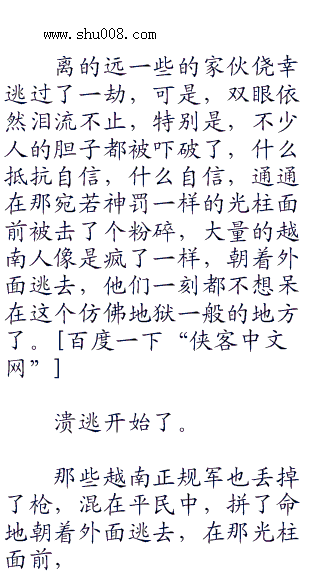 www.shu008.com
离的远一些的家伙侥幸
逃过了一劫，可是，双眼依
然泪流不止，特别是，不少
人的胆子都被吓破了，什么
抵抗自信，什么自信，通通
在那宛若神罚一样的光柱面
前被击了个粉碎，大量的越
南人像是疯了一样，朝着外
面逃去，他们一刻都不想呆
在这个仿佛地狱一般的地方
了。[百度一下“侠客中文
网”]
溃逃开始了。
那些越南正规军也丢掉
了枪，混在平民中，拼了命
地朝着外面逃去，在那光柱
面前，